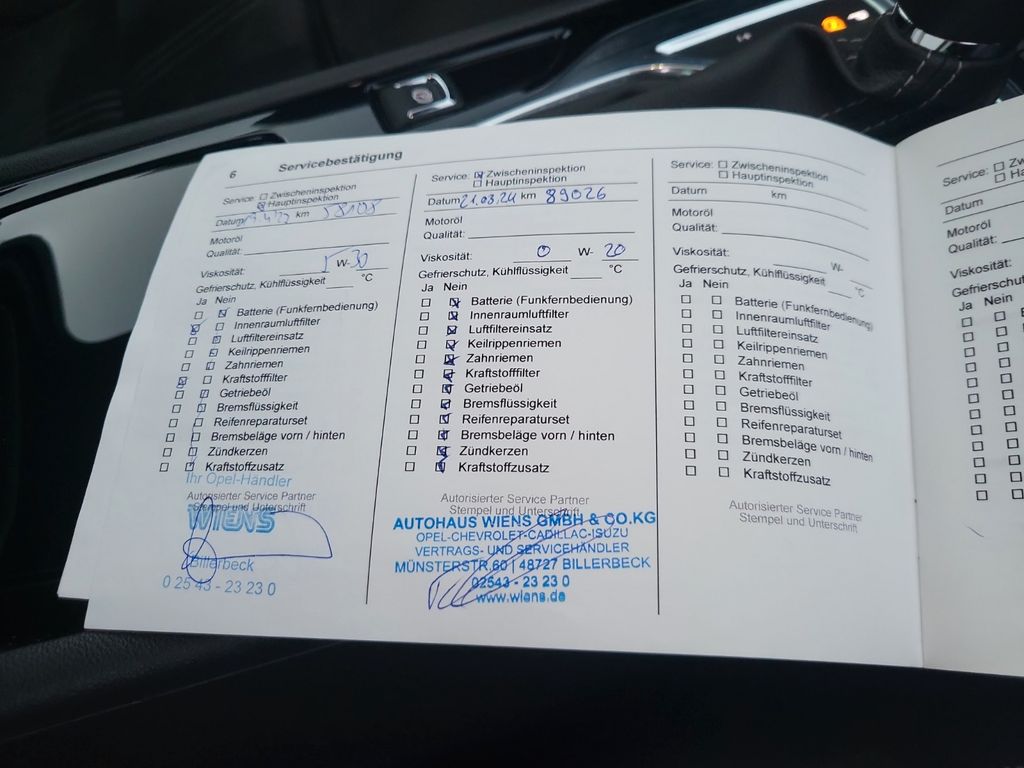 6 Servicebestätigung
Service ☐ Zwischeninspektion
☒ Hauptinspektion
Datum km 58108
Motoröl
Qualität:
Viskosität: 5 W- 30
Gefrierschutz, Kühlflüssigkeit °C
Ja Nein
Batterie (Funkfernbedienung)
Innenraumluftfilter
Luftfiltereinsatz
Keilrippenriemen
Zahnriemen
Kraftstofffilter
Getriebeöl
Bremsflüssigkeit
Reifenreparaturset
Bremsbeläge vorn / hinten
Zündkerzen
Kraftstoffzusatz
Ihr Opel-Händler
Autorisierter Service Partner
Stempel und Unterschrift
WIENS
Billerbeck
0 25 43 - 23 23 0
Service: ☒ Zwischeninspektion
☐ Hauptinspektion
Datum 21.03.24 km 89026
Motoröl
Qualität:
Viskosität: 0 W- 20
Gefrierschutz, Kühlflüssigkeit °C
Ja Nein
Batterie (Funkfernbedienung)
Innenraumluftfilter
Luftfiltereinsatz
Keilrippenriemen
Zahnriemen
Kraftstofffilter
Getriebeöl
Bremsflüssigkeit
Reifenreparaturset
Bremsbeläge vorn / hinten
Zündkerzen
Kraftstoffzusatz
Autorisierter Service Partner
Stempel und Unterschrift
AUTOHAUS WIENS GMBH & CO.KG
OPEL-CHEVROLET-CADILLAC-ISUZU
VERTRAGS- UND SERVICEHÄNDLER
MÜNSTERSTR.60 | 48727 BILLERBECK
02543 - 23 23 0
www.wiens.de
Service: ☐ Zwischeninspektion
☐ Hauptinspektion
Datum km
Motoröl
Qualität:
Viskosität: W-
Gefrierschutz, Kühlflüssigkeit °C
Ja Nein
Batterie (Funkfernbedienung)
Innenraumluftfilter
Luftfiltereinsatz
Keilrippenriemen
Zahnriemen
Kraftstofffilter
Getriebeöl
Bremsflüssigkeit
Reifenreparaturset
Bremsbeläge vorn / hinten
Zündkerzen
Kraftstoffzusatz
Autorisierter Service Partner
Stempel und Unterschrift
Service: ☐
☐
Datum
Motoröl
Qualität:
Viskosität:
Gefrierschutz
Ja Nein